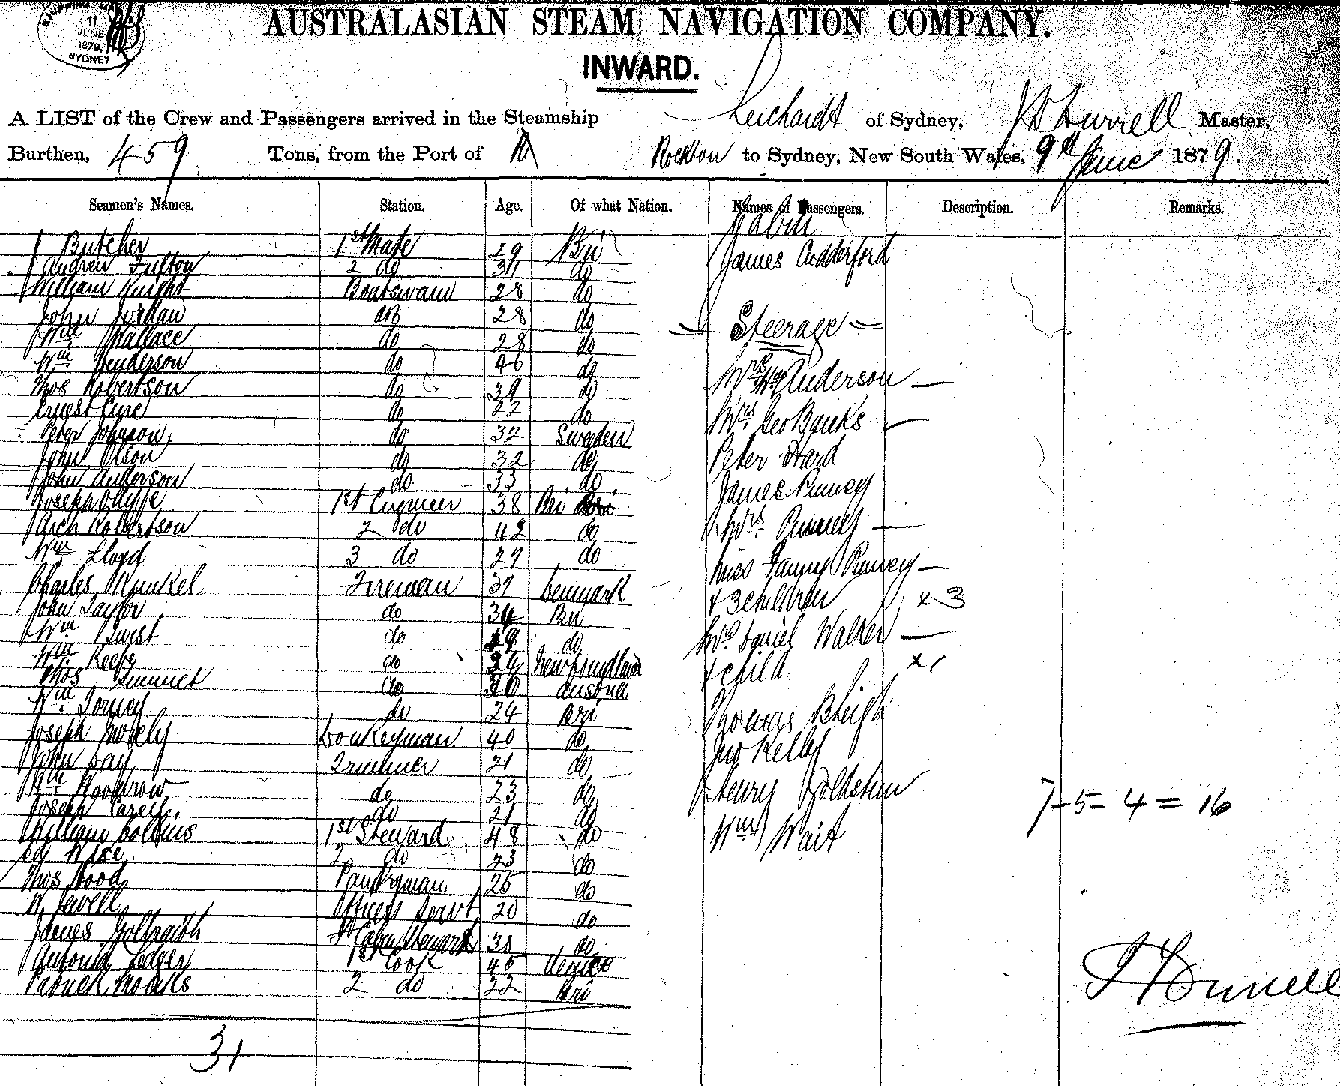 11
1879
SYDNEY
AUSTRALASIAN STEAM NAVIGATION COMPANY.
INWARD.
A LIST of the Crew and Passengers arrived in the Steamship Leichardt of Sydney, Master,
Burthen, 459 Tons, from the Port of Rockton to Sydney, New South Wales, 9th June 1879.
Seamen's Names. Station. Age. Of what Nation. Names of Passengers. Description. Remarks.
Cabin
Butcher 1st Mate 29 Bri
Andrew Fulton 2 do do James
William Knight Boatswain 28 do
John Jordan 28 do
Steerage
Wm Wallace do 28 do
Wm Henderson do 46 do
Mrs Anderson
Thos Robertson do 39 do
Ernest Eyre do 22 do
Mrs Geo Banks
Peter Johnson do 32 Sweden
John Olson do 32 do
Peter Ward
John Anderson do 33 do
James Pinney
Joseph 1st Engineer 38 Bri
Arch Robertson 2 do 42 do
Mrs Pinney
Wm Lloyd 3 do 27 do
Miss Fanny Pinney
Charles Fireman 37 Denmark
+ 3 children x 3
John Taylor do 34 Bri
Wm do do
Mrs Daniel Walker
Wm Keefe do Newfoundland
+ child x 1
Thos do 30 Austria
Wm Torney do 24 Bri
Thomas Bleigh
Joseph Donkeyman 40 do
Jno Kelly
John Day Trimmer 21 do
Wm Woodrow do 23 do
Henry Goldstein
7-5=4=16
Joseph do 21 do
William Collins 1st Steward 48 do
Wm Wait
Ed Wise 2 do 23 do
Thos Wood Pantryman 25 do
W Jewell Officers Servt 20 do
James Galbraith Steward 38 do
Antonio 1st Cook 45 Venice
Patrick 2 do 22 Bri
31